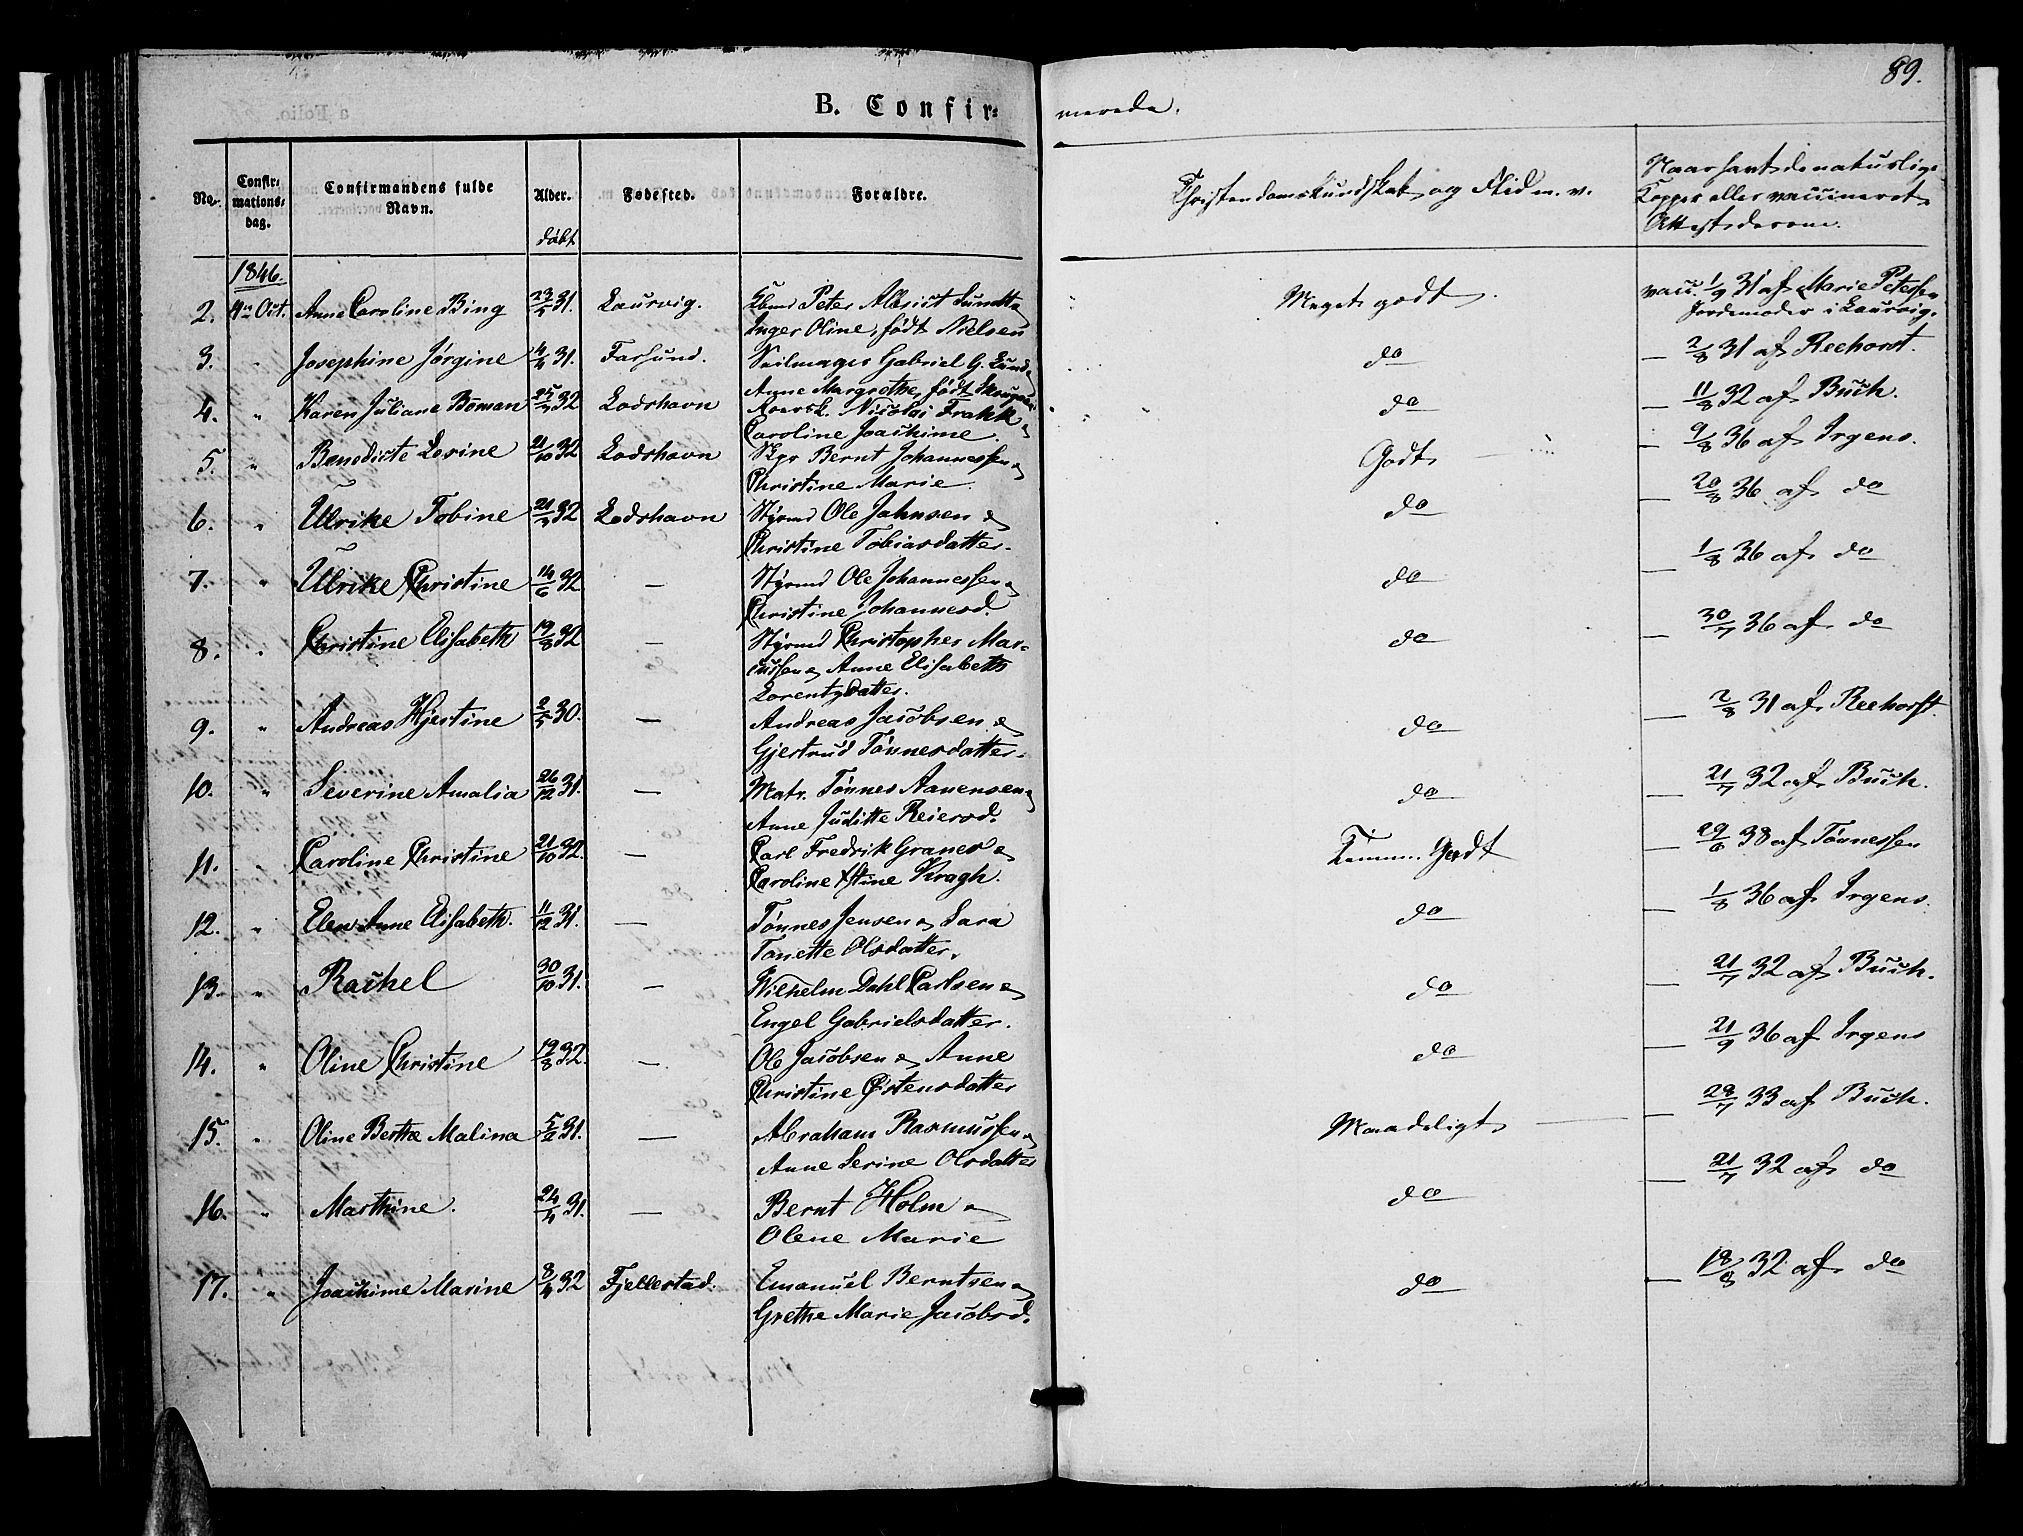 89.
B. Confir=
merede.
No. Confir= mations= dag. Confirmandens fulde Navn. Alder. Fødested. Forældre. Christendomskundskab og Flid m. v. Naar havt de naturlige
døbt Kopper eller vaccineret.
Attest derom.
1846.
2. 4de Oct. Anne Caroline Bing 31. Laurvig. Peter Albrist Meget godt vacc. 1/9 31 af Marie Petersen
Inger Oline, født Nielsen Jordemoder i Laurvig.
3. " Josephine Jørgine 4/4 31. Farsund. Seilmager Gabriel G. Lund & do — 2/8 31 af Reehorst.
Anne Margrethe, født
4. " Karen Juliane Boman 32 Lodshavn Nicolai Frakk & do — 11/8 32 af Buch.
Caroline Joachime
5. " Benedicte Levine 21/10 32 Lodshavn Skpr Bernt Johannessen & Godt — 9/8 36 af Irgens.
Christine Marie
6. " Ulrike Tobine 32 Lodshavn Styrmd Ole Jahnsen & do — 20/8 36 af do
Christine Tobiasdatter.
7. " Ulrike Christine 14/6 32 — Styrmd Ole Johannessen & do — 1/8 36 af do
Christine Johannesd.
8. " Christine Elisabeth 19/8 32 — Styrmd Christopher Mar= do — 30/7 36 af do
cussen & Anne Elisabeth
Lorentzdatter.
9. " Andreas Hjertine 2/5 30. — Andreas Jacobsen & do — 2/8 31 af Reehorst.
Gjertrud Tønnesdatter.
10. " Severine Amalia 26/12 31. — Matr. Tønnes Aanensen & do — 21/7 32 af Buch.
Anne Juditte Reiersd.
11. " Caroline Christine 21/10 32. — Carl Fredrik Graner & Temmel. Godt — 29/6 38 af Tønnessen
Caroline Stine Kragh.
12. " Elen Anne Elisabeth. 11/12 31. — Tønnes Jensen & Sara do — 1/8 36 af Irgens.
Tonette Olsdatter.
13. " Rachel 30/10 31. — Wilhelm Dahl Carlsen & do — 21/7 32 af Buch.
Engel Gabrielsdatter.
14. " Oline Christine 19/8 32. — Ole Jacobsen & Anne do — 21/9 36 af Irgens
Christine Østensdatter
15. " Oline Berthe Malina 5/2 31. — Abraham Rasmussen & Maadeligt — 28/7 33 af Buch.
Anne Serine Olsdatter
16. " Marthine. 24/4 31. — Bernt Holm & do — 21/7 32 af do
Olene Marie
17. " Joachime Marine 8/4 32 Fjellestad. Emanuel Berntsen & do — 18/8 32 af do
Grethe Marie Jacobsd.